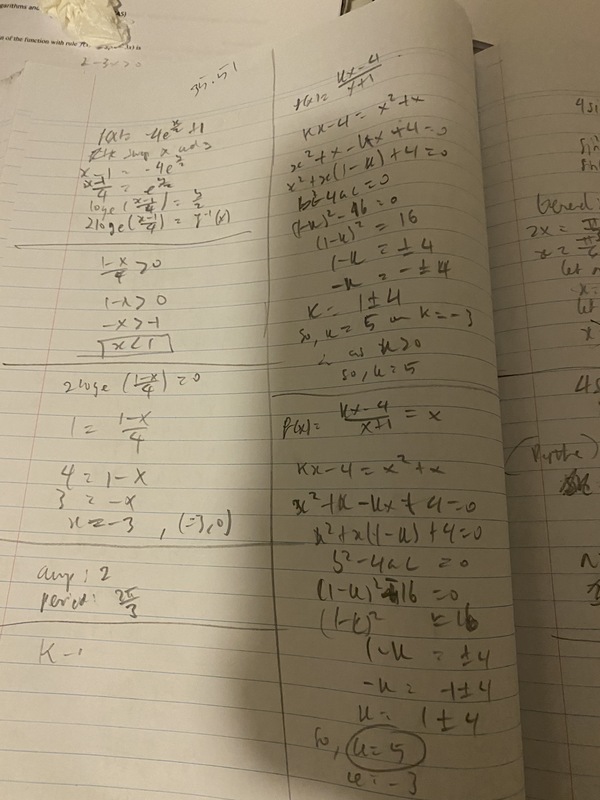 garithms and
n of the function with rule
2-3x>0
35.51
f(x) = -4e^(x/2) +1
swap x and y
x-1 = -4e^(y/2)
x-1/4 = e^(y/2)
loge(x-1/4) = y/2
2loge(x-1/4) = f^-1(x)
1-x/4 > 0
1-x > 0
-x > -1
x < 1
2loge(1-x/4) = 0
1 = 1-x/4
4 = 1-x
3 = -x
x = -3, (-3,0)
amp: 2
period: 2π/3
K -
f(x) = kx-4/x+1
kx-4 = x²+x
x²+x-kx+4=0
x²+x(1-k)+4=0
b²-4ac=0
(1-k)²-16=0
(1-k)² = 16
1-k = ±4
-k = -1±4
k = 1±4
so, k = 5 or k = -3
∴ as k>0
so, k = 5
f(x) = kx-4/x+1 = x
kx-4 = x²+x
x²+x-kx+4=0
x²+x(1-k)+4=0
b²-4ac = 0
(1-k)²-16=0
(1-k)² = 16
1-k = ±4
-k = -1±4
k = 1±4
so, k=5
k=-3
4si
sin
General:
2x =
x =
let
x =
let
x
4s